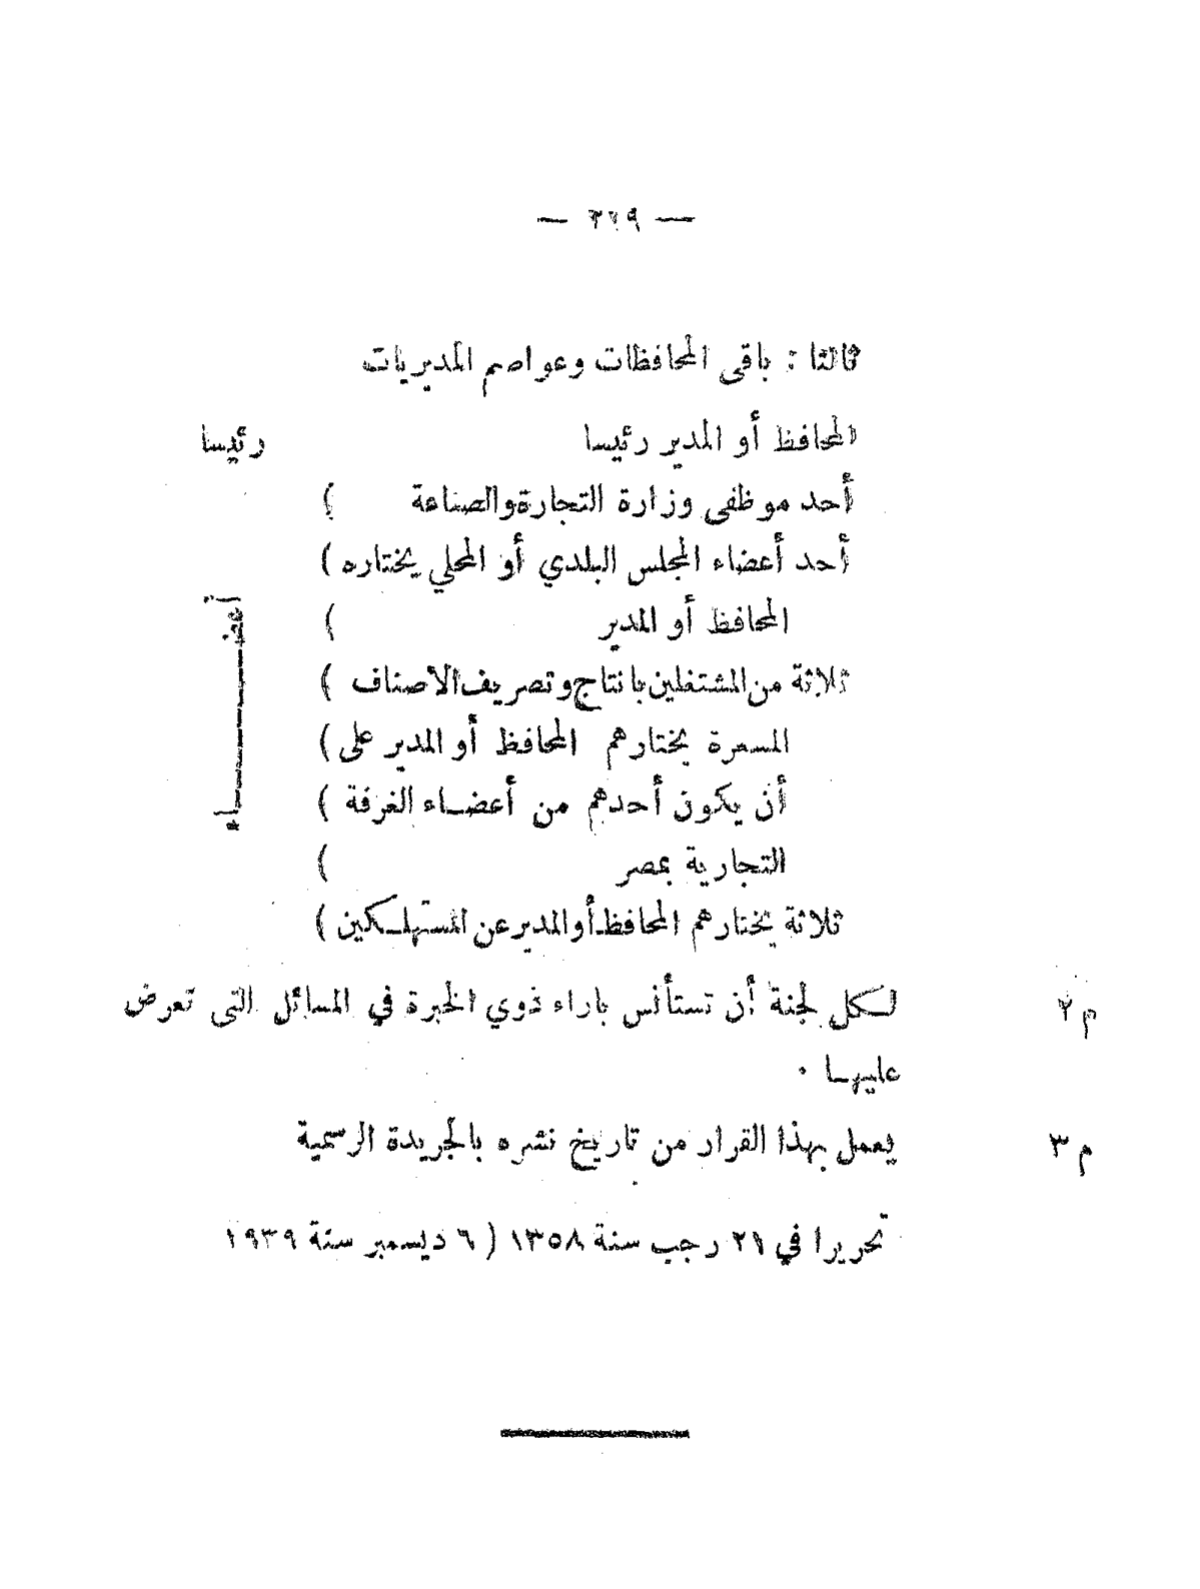 — ٣٢٩ —
ثالثا : باقى المحافظات وعواصم المديريات
المحافظ أو المدير رئيسا رئيسا
أحد موظفى وزارة التجارة والصناعة )
أحد أعضاء المجلس البلدي أو المحلي يختاره )
المحافظ أو المدير )
ثلاثة من المشتغلين بانتاج وتصريف الأصناف )
المسعرة يختارهم المحافظ أو المدير على )
أن يكون أحدهم من أعضـاء الغرفة )
التجارية بمصر )
ثلاثة يختارهم المحافظ أو المدير عن المستهلـكين )
أعضـــــاء
م ٢ لـكل لجنة أن تستأنس باراء ذوي الخبرة في المسائل التى تعرض
عليهـا .
م ٣ يعمل بهذا القرار من تاريخ نشره بالجريدة الرسمية
تحريرا في ٢١ رجب سنة ١٣٥٨ ( ٦ ديسمبر سنة ١٩٣٩